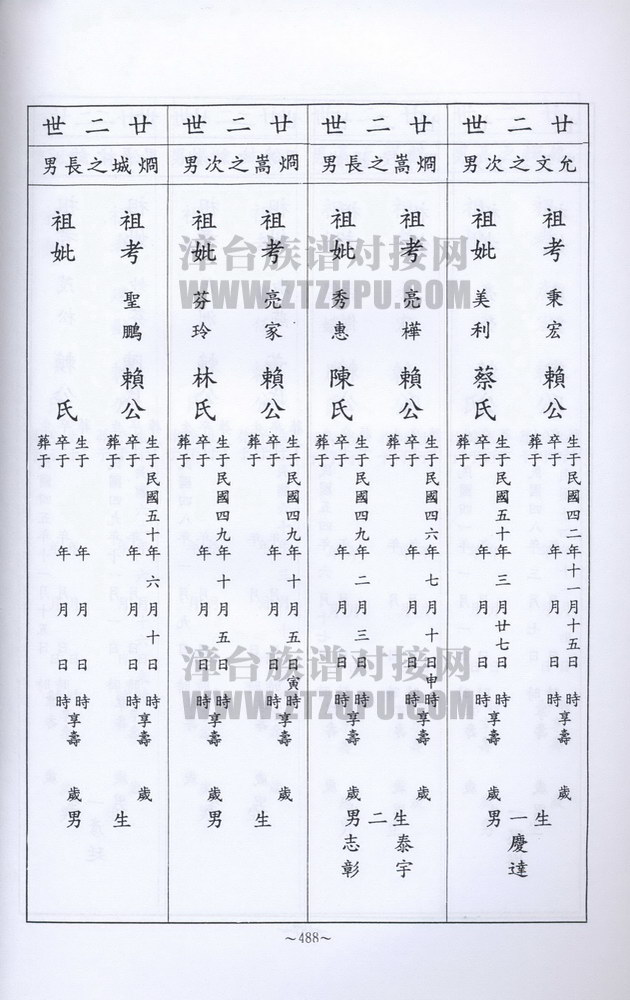 廿二世
允文之次男
祖考 秉宏 賴公
生于民國四二年十一月十五日 時享壽 歲
卒于 年 月 日 時
葬于
祖妣 美利 蔡氏
生于民國五十年三月廿七日 時享壽 歲
卒于 年 月 日 時
葬于
生一男
慶達
廿二世
烱嵩之長男
祖考 亮樺 賴公
生于民國四六年七月十日申時享壽 歲
卒于 年 月 日 時
葬于
祖妣 秀惠 陳氏
生于民國四九年二月三日 時享壽 歲
卒于 年 月 日 時
葬于
生二男
泰宇
志彰
廿二世
烱嵩之次男
祖考 亮家 賴公
生于民國四九年十月五日寅時享壽 歲
卒于 年 月 日 時
葬于
祖妣 芬玲 林氏
生于民國四九年十月五日 時享壽 歲
卒于 年 月 日 時
葬于
生 男
廿二世
烱城之長男
祖考 聖鵬 賴公
生于民國五十年六月十日 時享壽 歲
卒于 年 月 日 時
葬于
祖妣 氏
生于 年 月 日 時享壽 歲
卒于 年 月 日 時
葬于
生 男
～488～
漳台族谱对接网
WWW.ZTZUPU.COM
漳台族谱对接网
WWW.ZTZUPU.COM